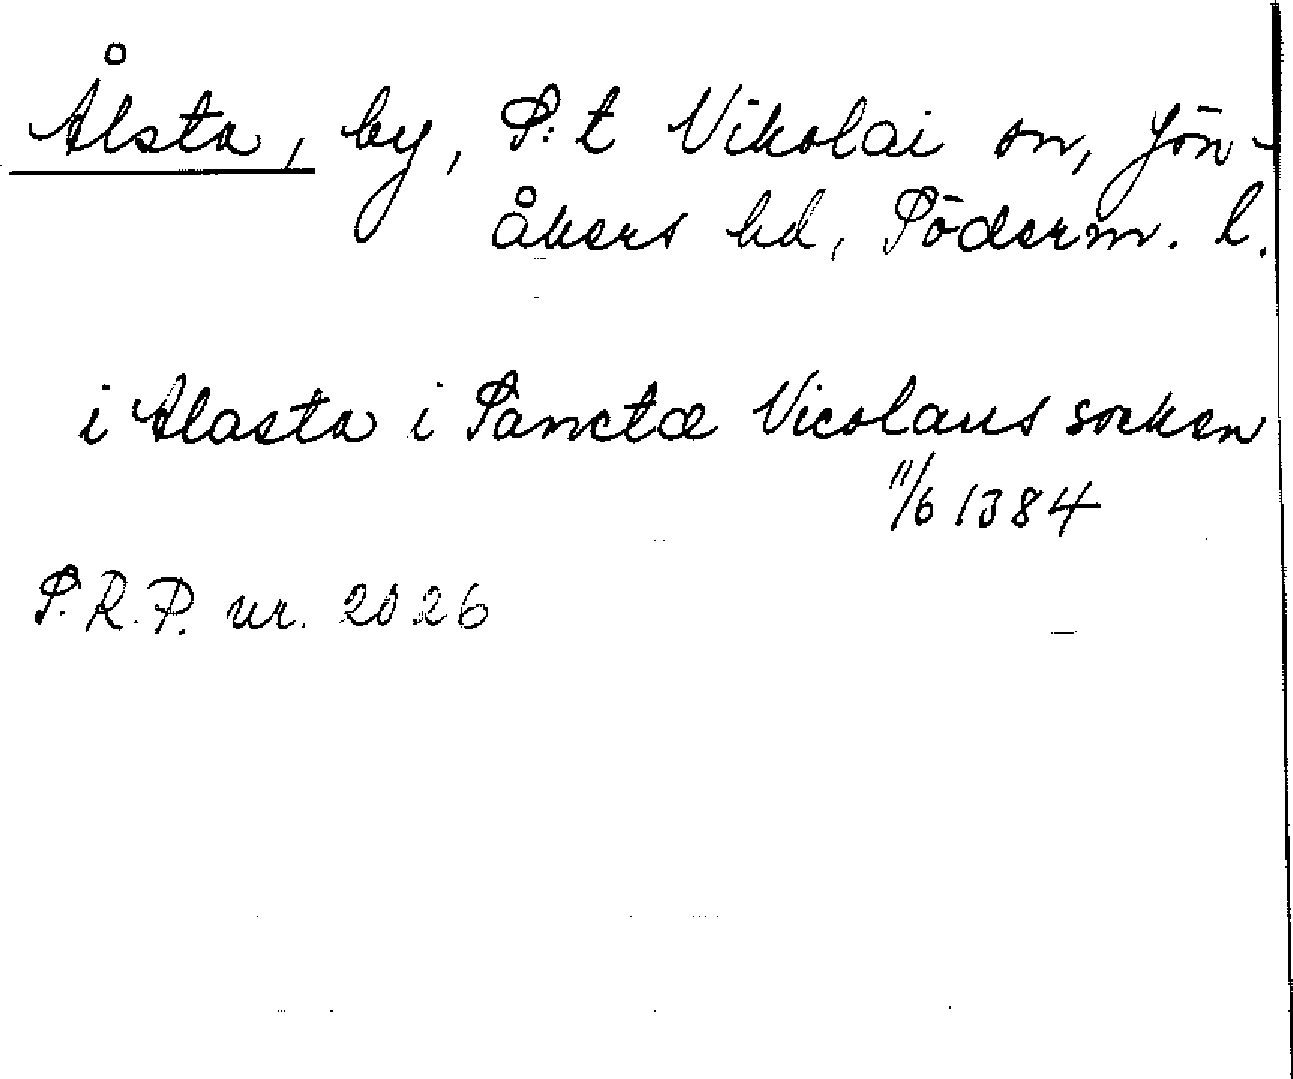 Ålsta, by, S:t Nikolai sn, Jön-
åkers hd, Söderm. l.
i Alasta i Sanctæ Nicolaus socken
11/6 1384
S.R.P. nr. 2026